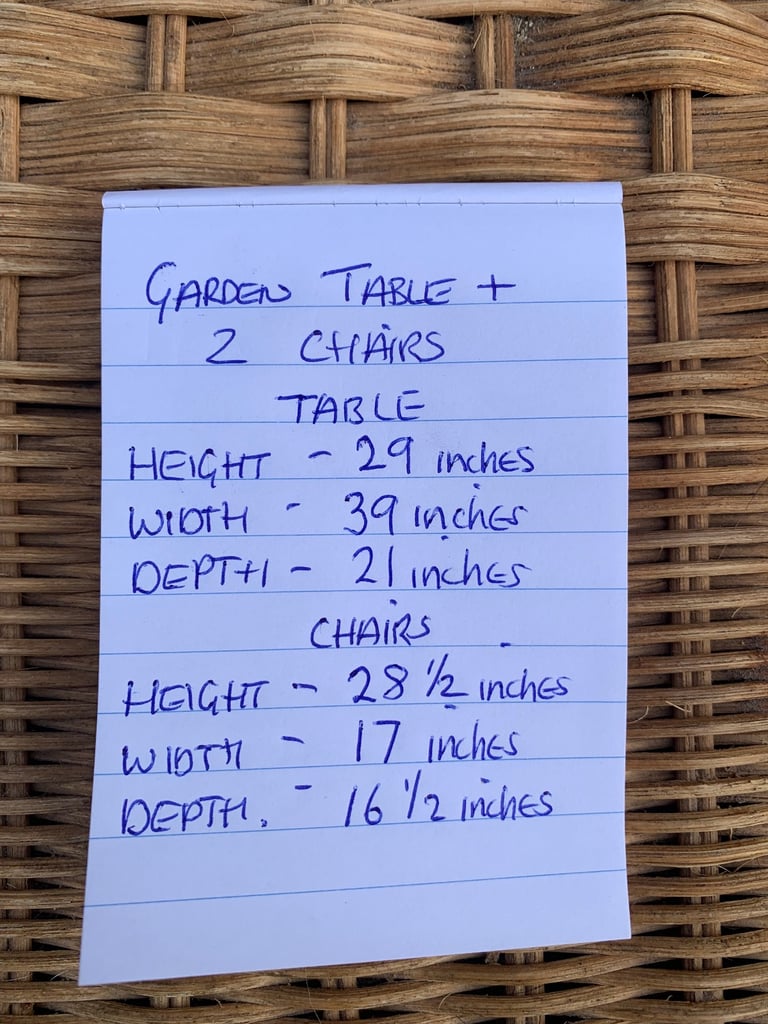 GARDEN TABLE +
2 CHAIRS
TABLE
HEIGHT - 29 inches
WIDTH - 39 inches
DEPTH - 21 inches
CHAIRS
HEIGHT - 28 1/2 inches
WIDTH - 17 inches
DEPTH. - 16 1/2 inches